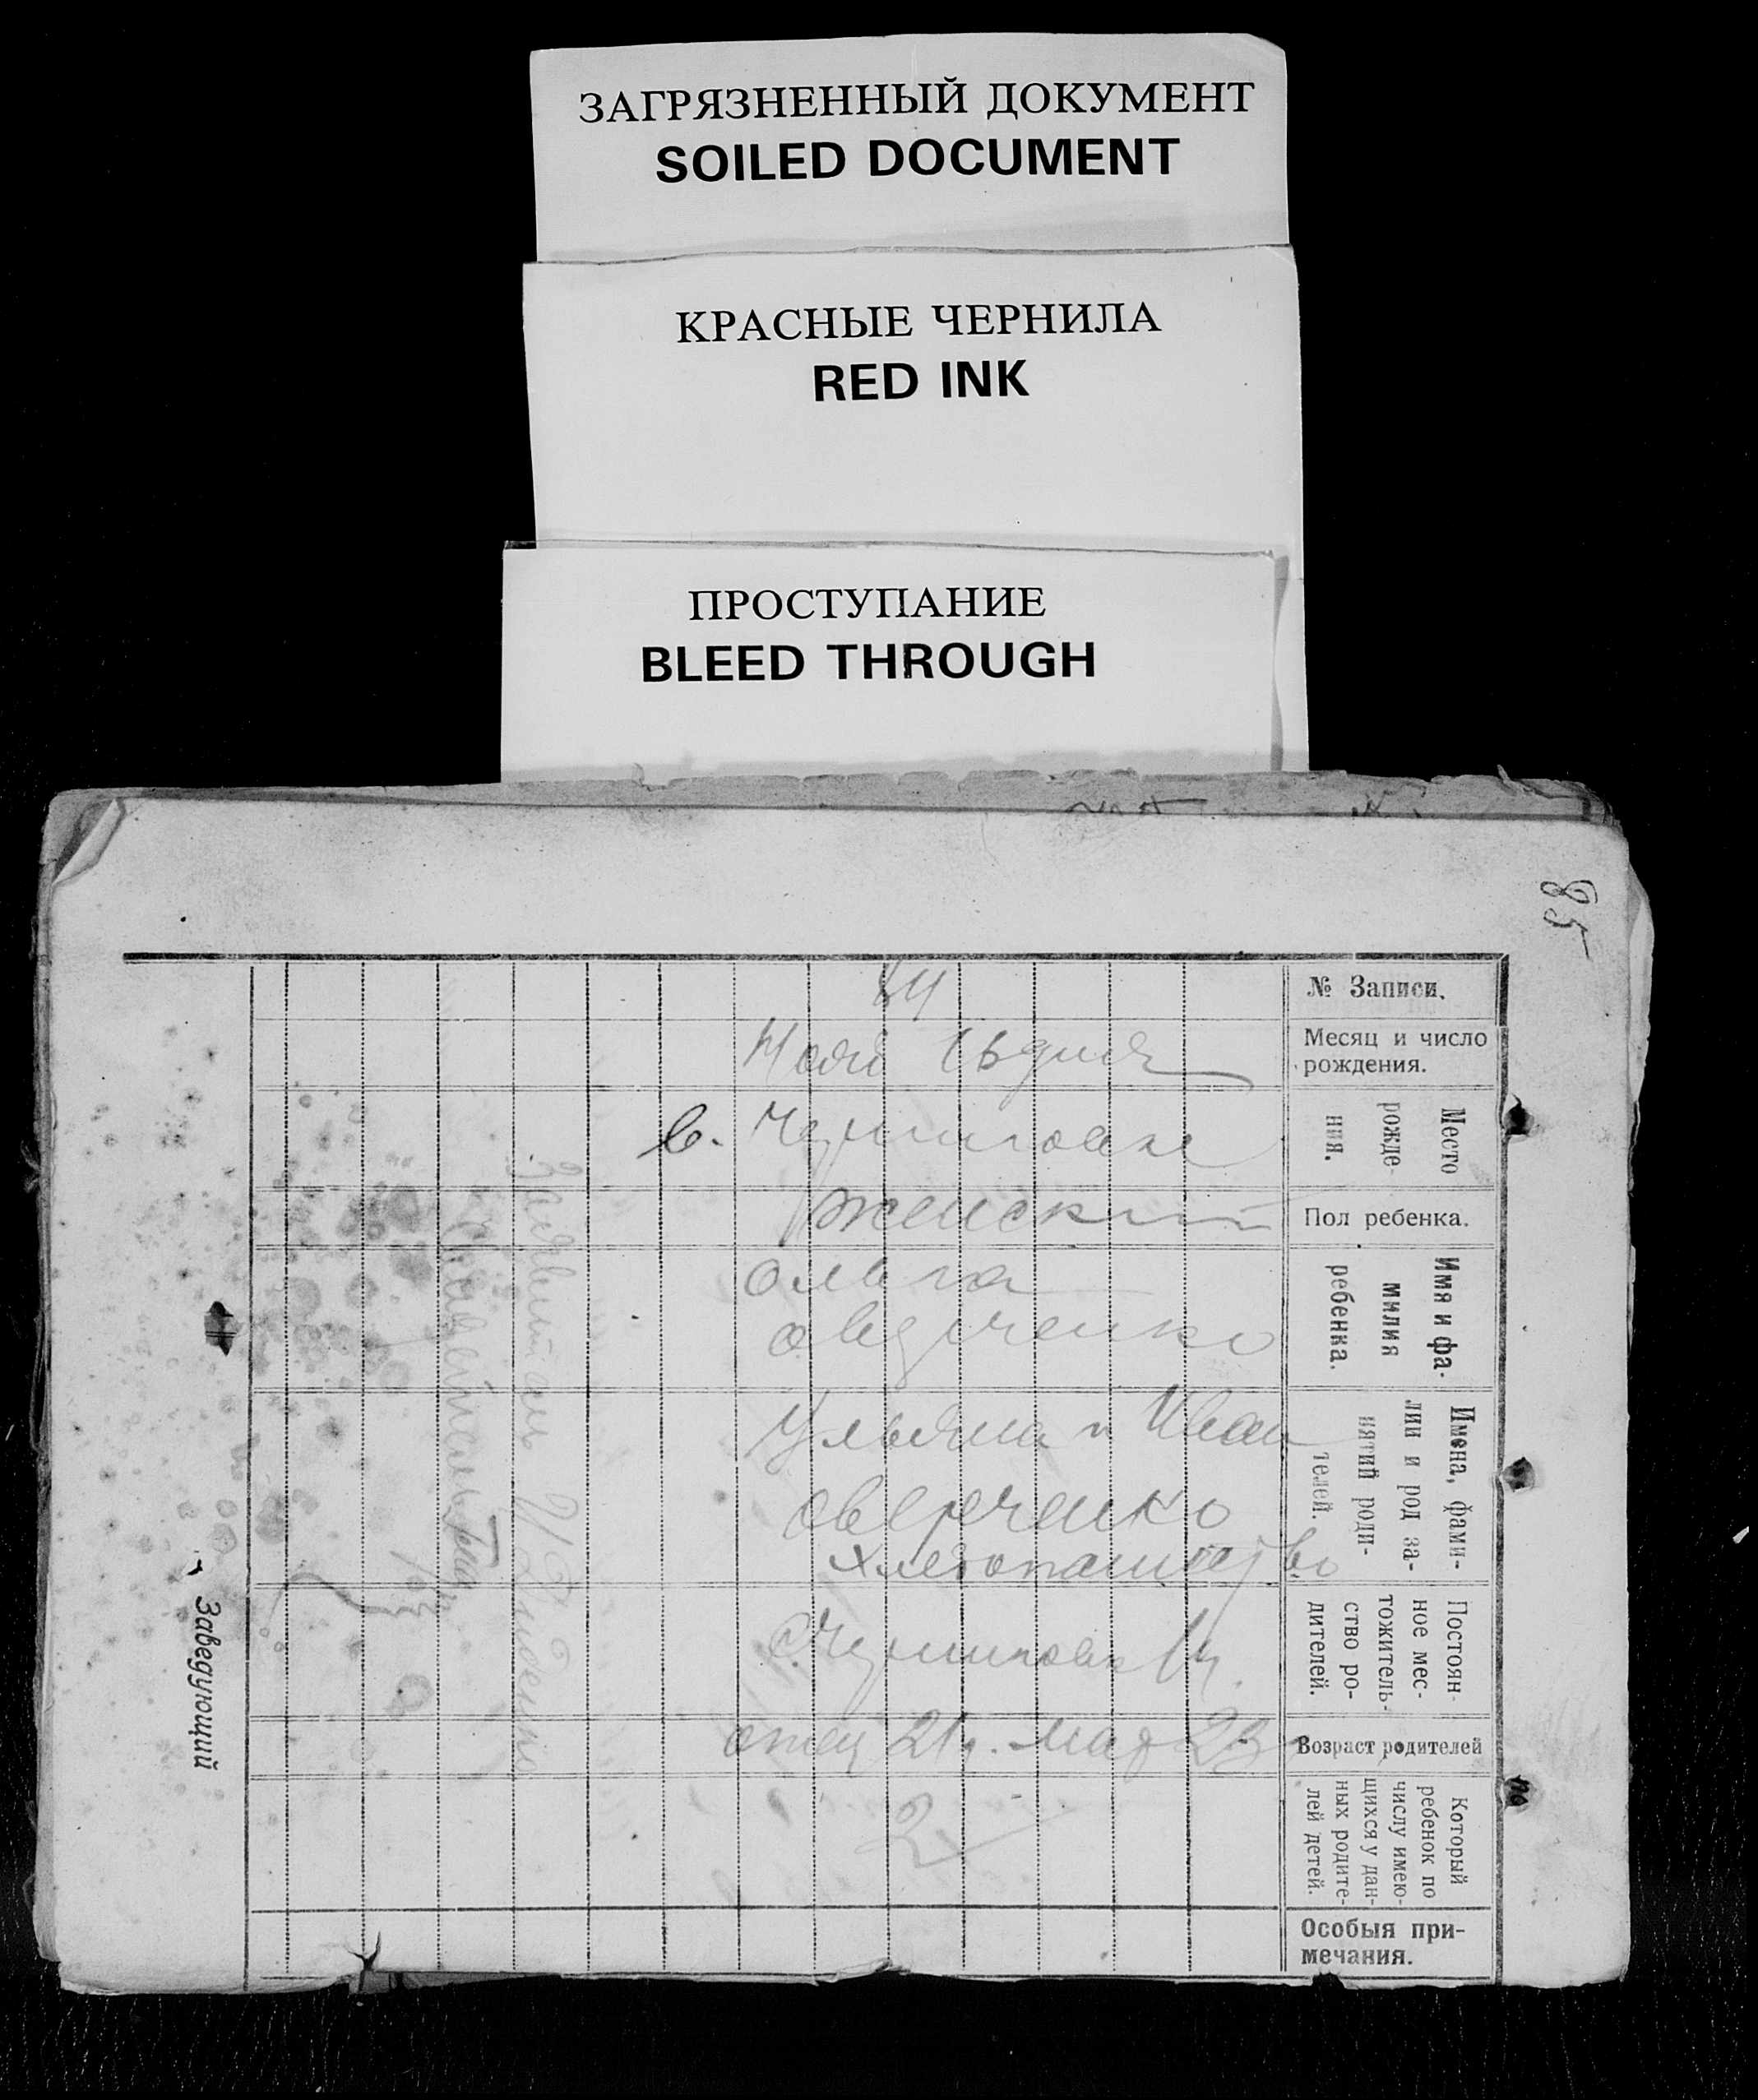 ЗАГРЯЗНЕННЫЙ ДОКУМЕНТ
SOILED DOCUMENT
КРАСНЫЕ ЧЕРНИЛА
RED INK
ПРОСТУПАНИЕ
BLEED THROUGH
85
№ Записи.
84
Месяц и число
рождения.
16 дня
Место
рожде-
ния.
в.
Пол ребенка.
женский
Имя и фа-
милия
ребенка.
Ольга
Имена, фами-
лии и род за-
нятий роди-
телей.
Ульяна и Иван
Оверченко
хлебопашество
Постоян-
ное мес-
тожитель-
ство ро-
дителей.
Возраст родителей
отец 21 г. мат 23
Который
ребенок по
числу имею-
щихся у дан-
ных родите-
лей детей.
2
Особыя при-
мечания.
Заведующий